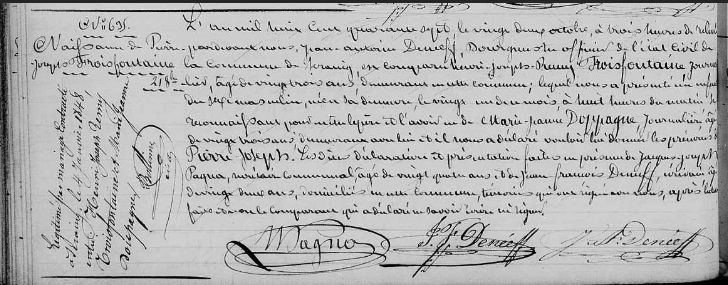 N° 691.
Naissance de Pierre
Joseph Troisfontaine
218bre
Légitimé par mariage contracté
à Seraing le 4 Janvier 1848
entre Henri Joseph Remy
Troisfontaine et Marie Jeanne
Doppagne
L'an mil huit cent quarante sept, le vingt deux octobre, à trois heures de relevée
pardevant nous, Jean Antoine Denéef, Bourgmestre officier de l'état civil de
la commune de Seraing est comparu henri-joseph-Remy Troisfontaine journa-
lier, âgé de vingt trois ans, demeurant en cette commune; lequel nous a présenté un enfant
du sexe masculin, né en sa demeure, le vingt un de ce mois, à huit heures du matin, le
reconnaissant pour être le père et l'avoir eu de Marie-jeanne Doppagne Journalière âgée
de vingt trois ans, demeurant avec lui et il nous a déclaré vouloir lui donner les prénoms de
Pierre Joseph. Lesdites déclaration et présentation faites en présence de Jacques joseph
Magna, communal, âgé de vingt quatre ans et de Jean François Denéef, écrivain âgé
de vingt deux ans, domiciliés en cette commune, témoins qui ont signé avec nous, après lecture
faite et non le comparant qui a déclaré ne savoir écrire ni signer.
Magna J. F. Denéef J. A. Denéef